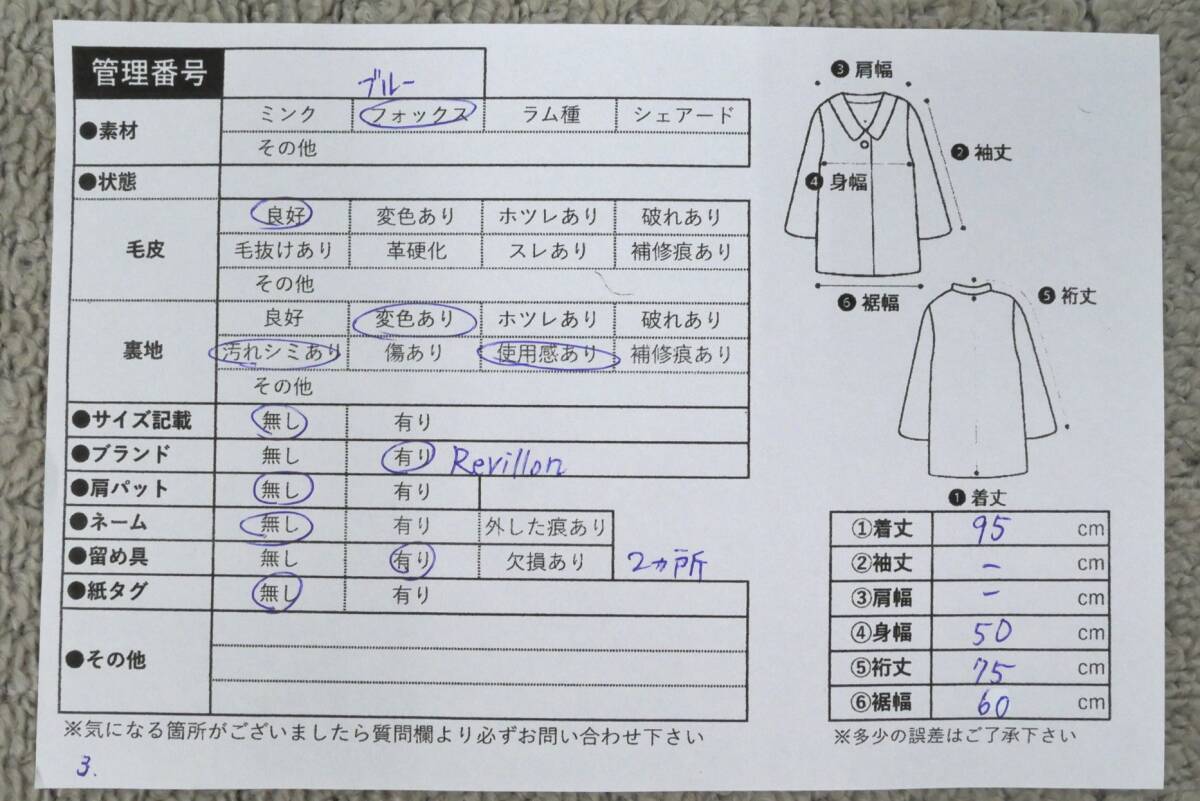 管理番号
ブルー
●素材 ミンク フォックス ラム種 シェアード
その他
●状態
毛皮 良好 変色あり ホツレあり 破れあり
毛抜けあり 革硬化 スレあり 補修痕あり
その他
裏地 良好 変色あり ホツレあり 破れあり
汚れシミあり 傷あり 使用感あり 補修痕あり
その他
●サイズ記載 無し 有り
●ブランド 無し 有り Revillon
●肩パット 無し 有り
●ネーム 無し 有り 外した痕あり
●留め具 無し 有り 欠損あり 2ヵ所
●紙タグ 無し 有り
●その他
※気になる箇所がございましたら質問欄より必ずお問い合わせ下さい
3.
❸ 肩幅
❷ 袖丈
❹ 身幅
❻ 裾幅
❺ 裄丈
❶ 着丈
①着丈 95 cm
②袖丈 – cm
③肩幅 – cm
④身幅 50 cm
⑤裄丈 75 cm
⑥裾幅 60 cm
※多少の誤差はご了承下さい